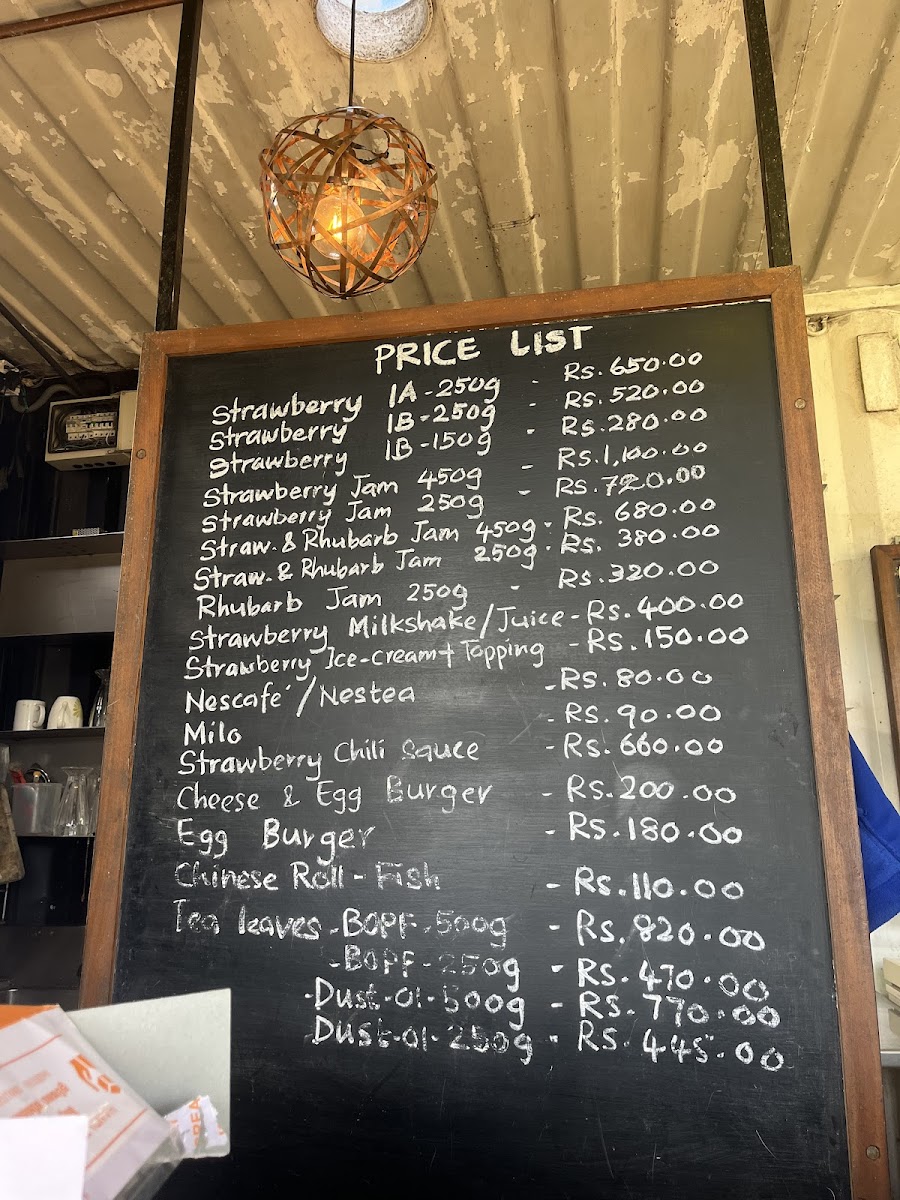 PRICE LIST
Strawberry IA-250g - Rs.650.00
Strawberry IB-250g - Rs.520.00
Strawberry IB-150g - Rs.280.00
Strawberry Jam 450g - Rs.1,100.00
Strawberry Jam 250g - Rs.720.00
Straw. & Rhubarb Jam 450g - Rs. 680.00
Straw. & Rhubarb Jam 250g - Rs. 380.00
Rhubarb Jam 250g - Rs.320.00
Strawberry Milkshake/Juice - Rs.400.00
Strawberry Ice-cream+Topping - Rs.150.00
Nescafé/Nestea - Rs.80.00
Milo - Rs.90.00
Strawberry Chili Sauce - Rs.660.00
Cheese & Egg Burger - Rs.200.00
Egg Burger - Rs.180.00
Chinese Roll - Fish - Rs.110.00
Tea leaves - BOPF - 500g - Rs.820.00
- BOPF - 250g - Rs.470.00
- Dust-01-500g - Rs.770.00
Dust-01-250g - Rs.445.00